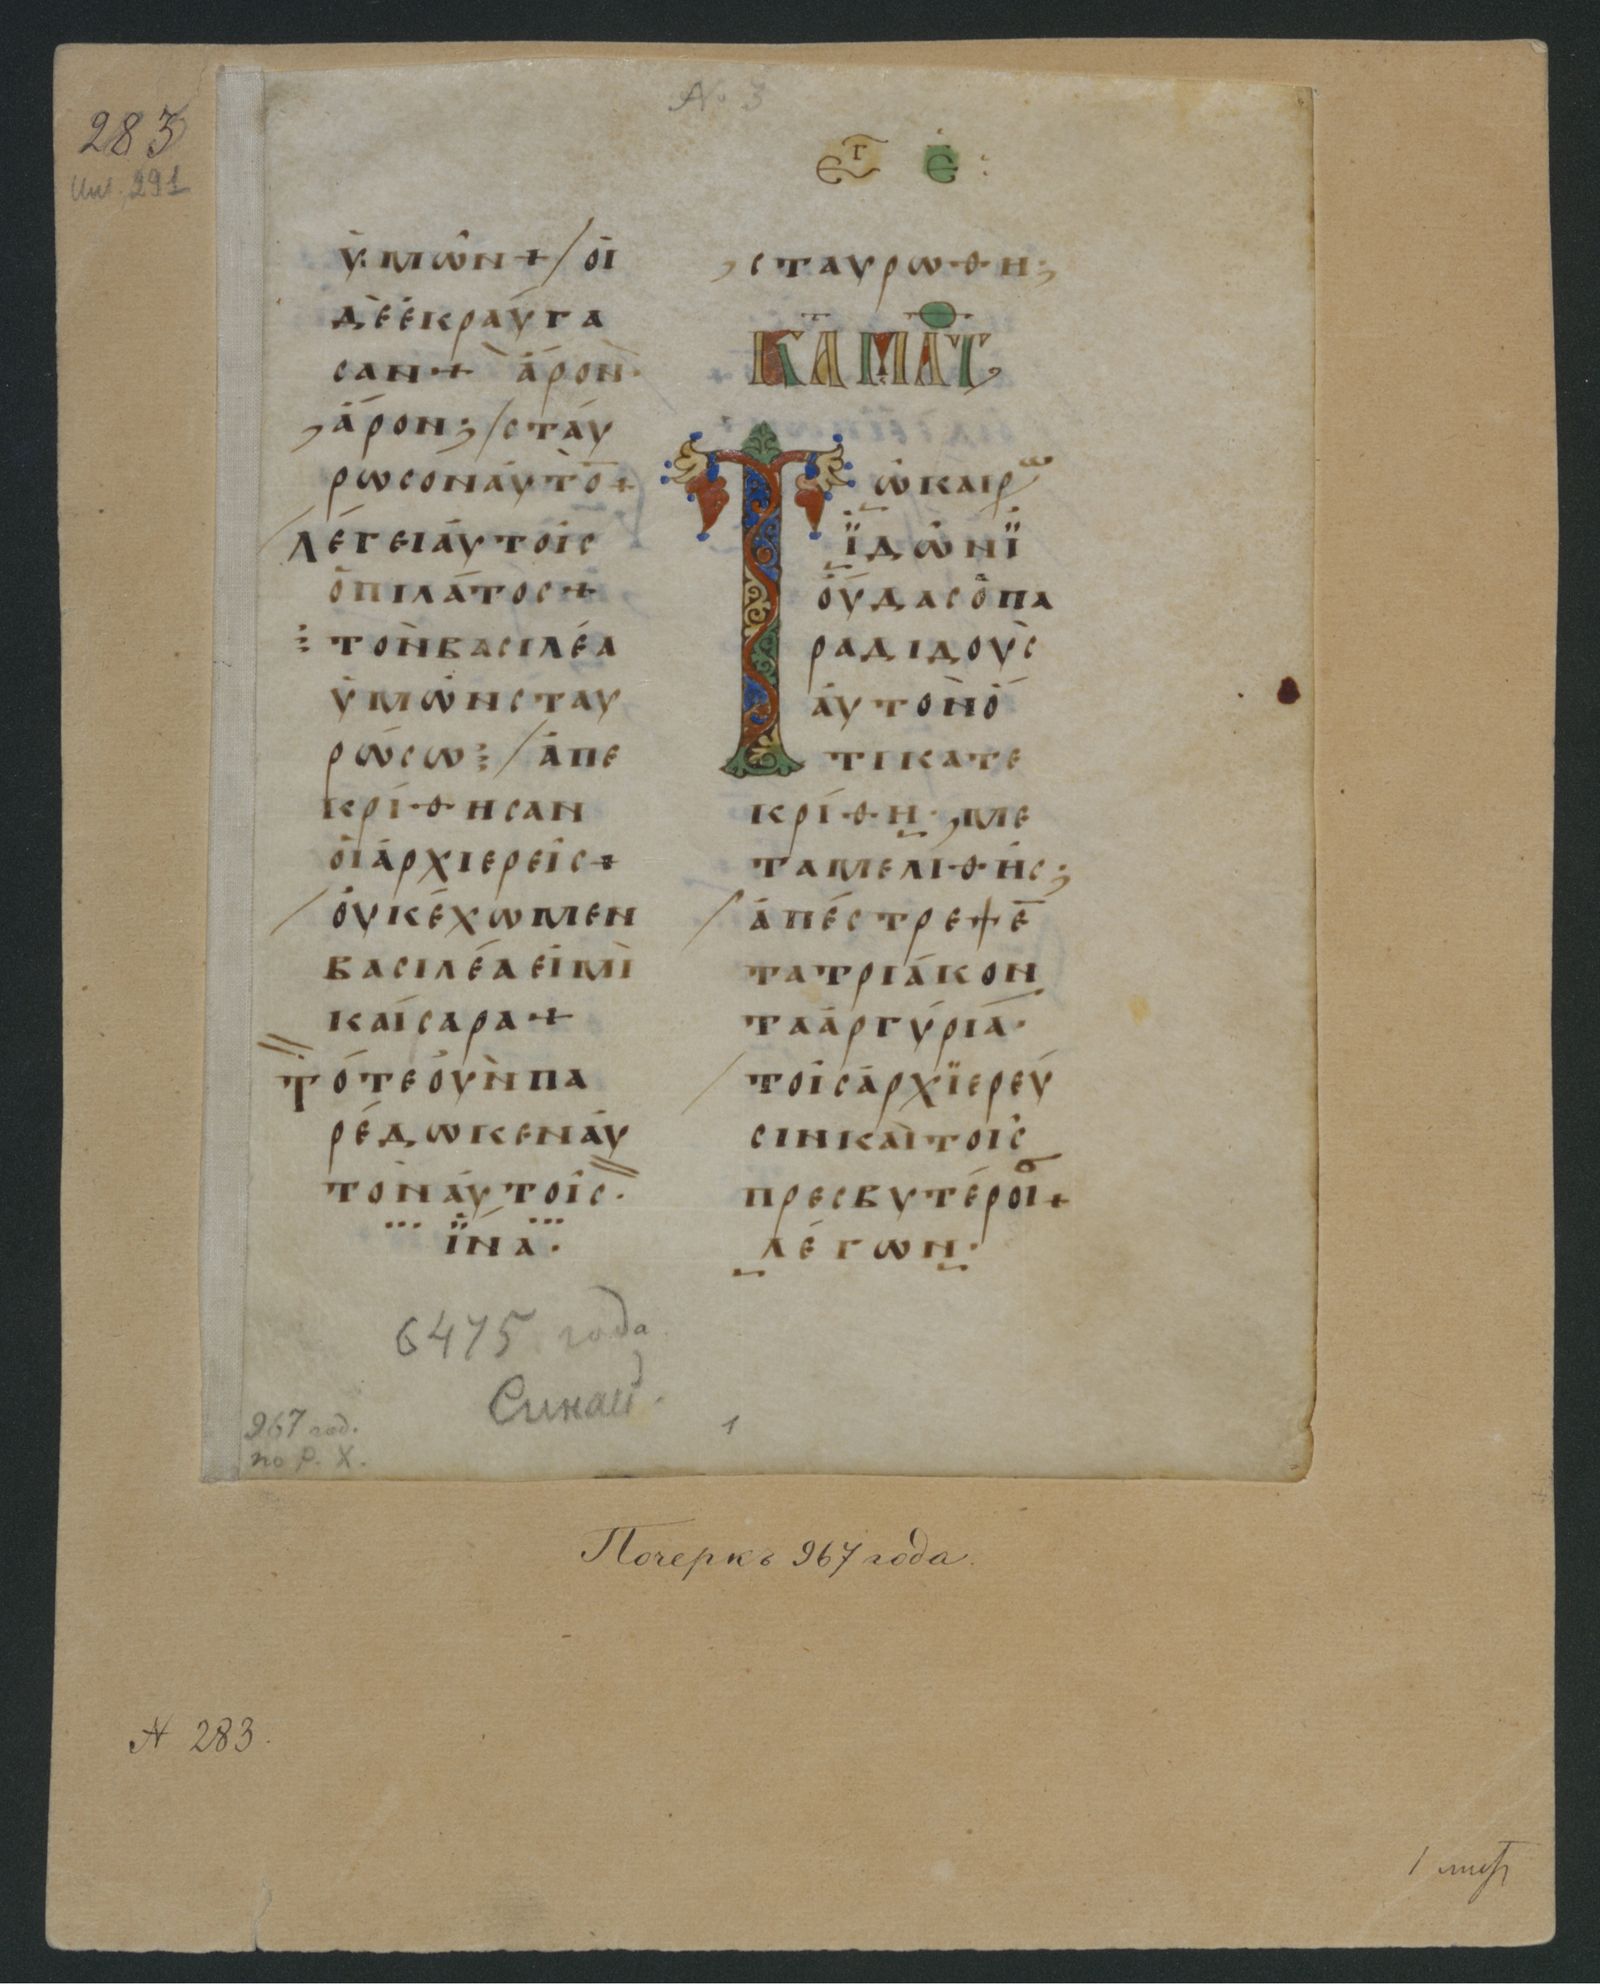 283
Инв. 291
№ 3
ΕΥΓ Ε :
ὑμῶν + / οἱ
δὲ ἐκραύγα
σαν + ἆρον·
ἆρον; / σταύ
ρωσον αὐτὸ̅ +
λέγει αὐτοῖς
ὁ πιλάτος +
τὸν βασιλέα
ὑμῶν σταυ
ρώσω; / ἀπε
κρίθησαν
οἱ ἀρχιερεῖς +
οὐκ ἔχωμεν
βασιλέα εἰ μὶ
καίσαρα +
Τότε οὖν πα
ρέδωκεν αὐ
τὸν αὐτοῖς·
ἵ̈να·
σταυρωθῆ;
ΚΑ ΜΑΤ
Τῶ καιρ^ω
ἰ̈δὼν ἰ̈
ούδας ὁ πα
ραδιδοὺς
αὐτὸν ὅ
τι κατε
κρίθη· με
ταμελιθῆς;
ἀπέστρεψε̅
τα τριάκον
τα ἀργύρια·
τοῖς ἀρχϊερεῦ
σιν καὶ τοῖς
πρεσβυτέροι +
λέγων·
6475 года
Синай.
967 год.
по Р. Х.
1
Почеркъ 967 года.
№ 283.
1 листъ